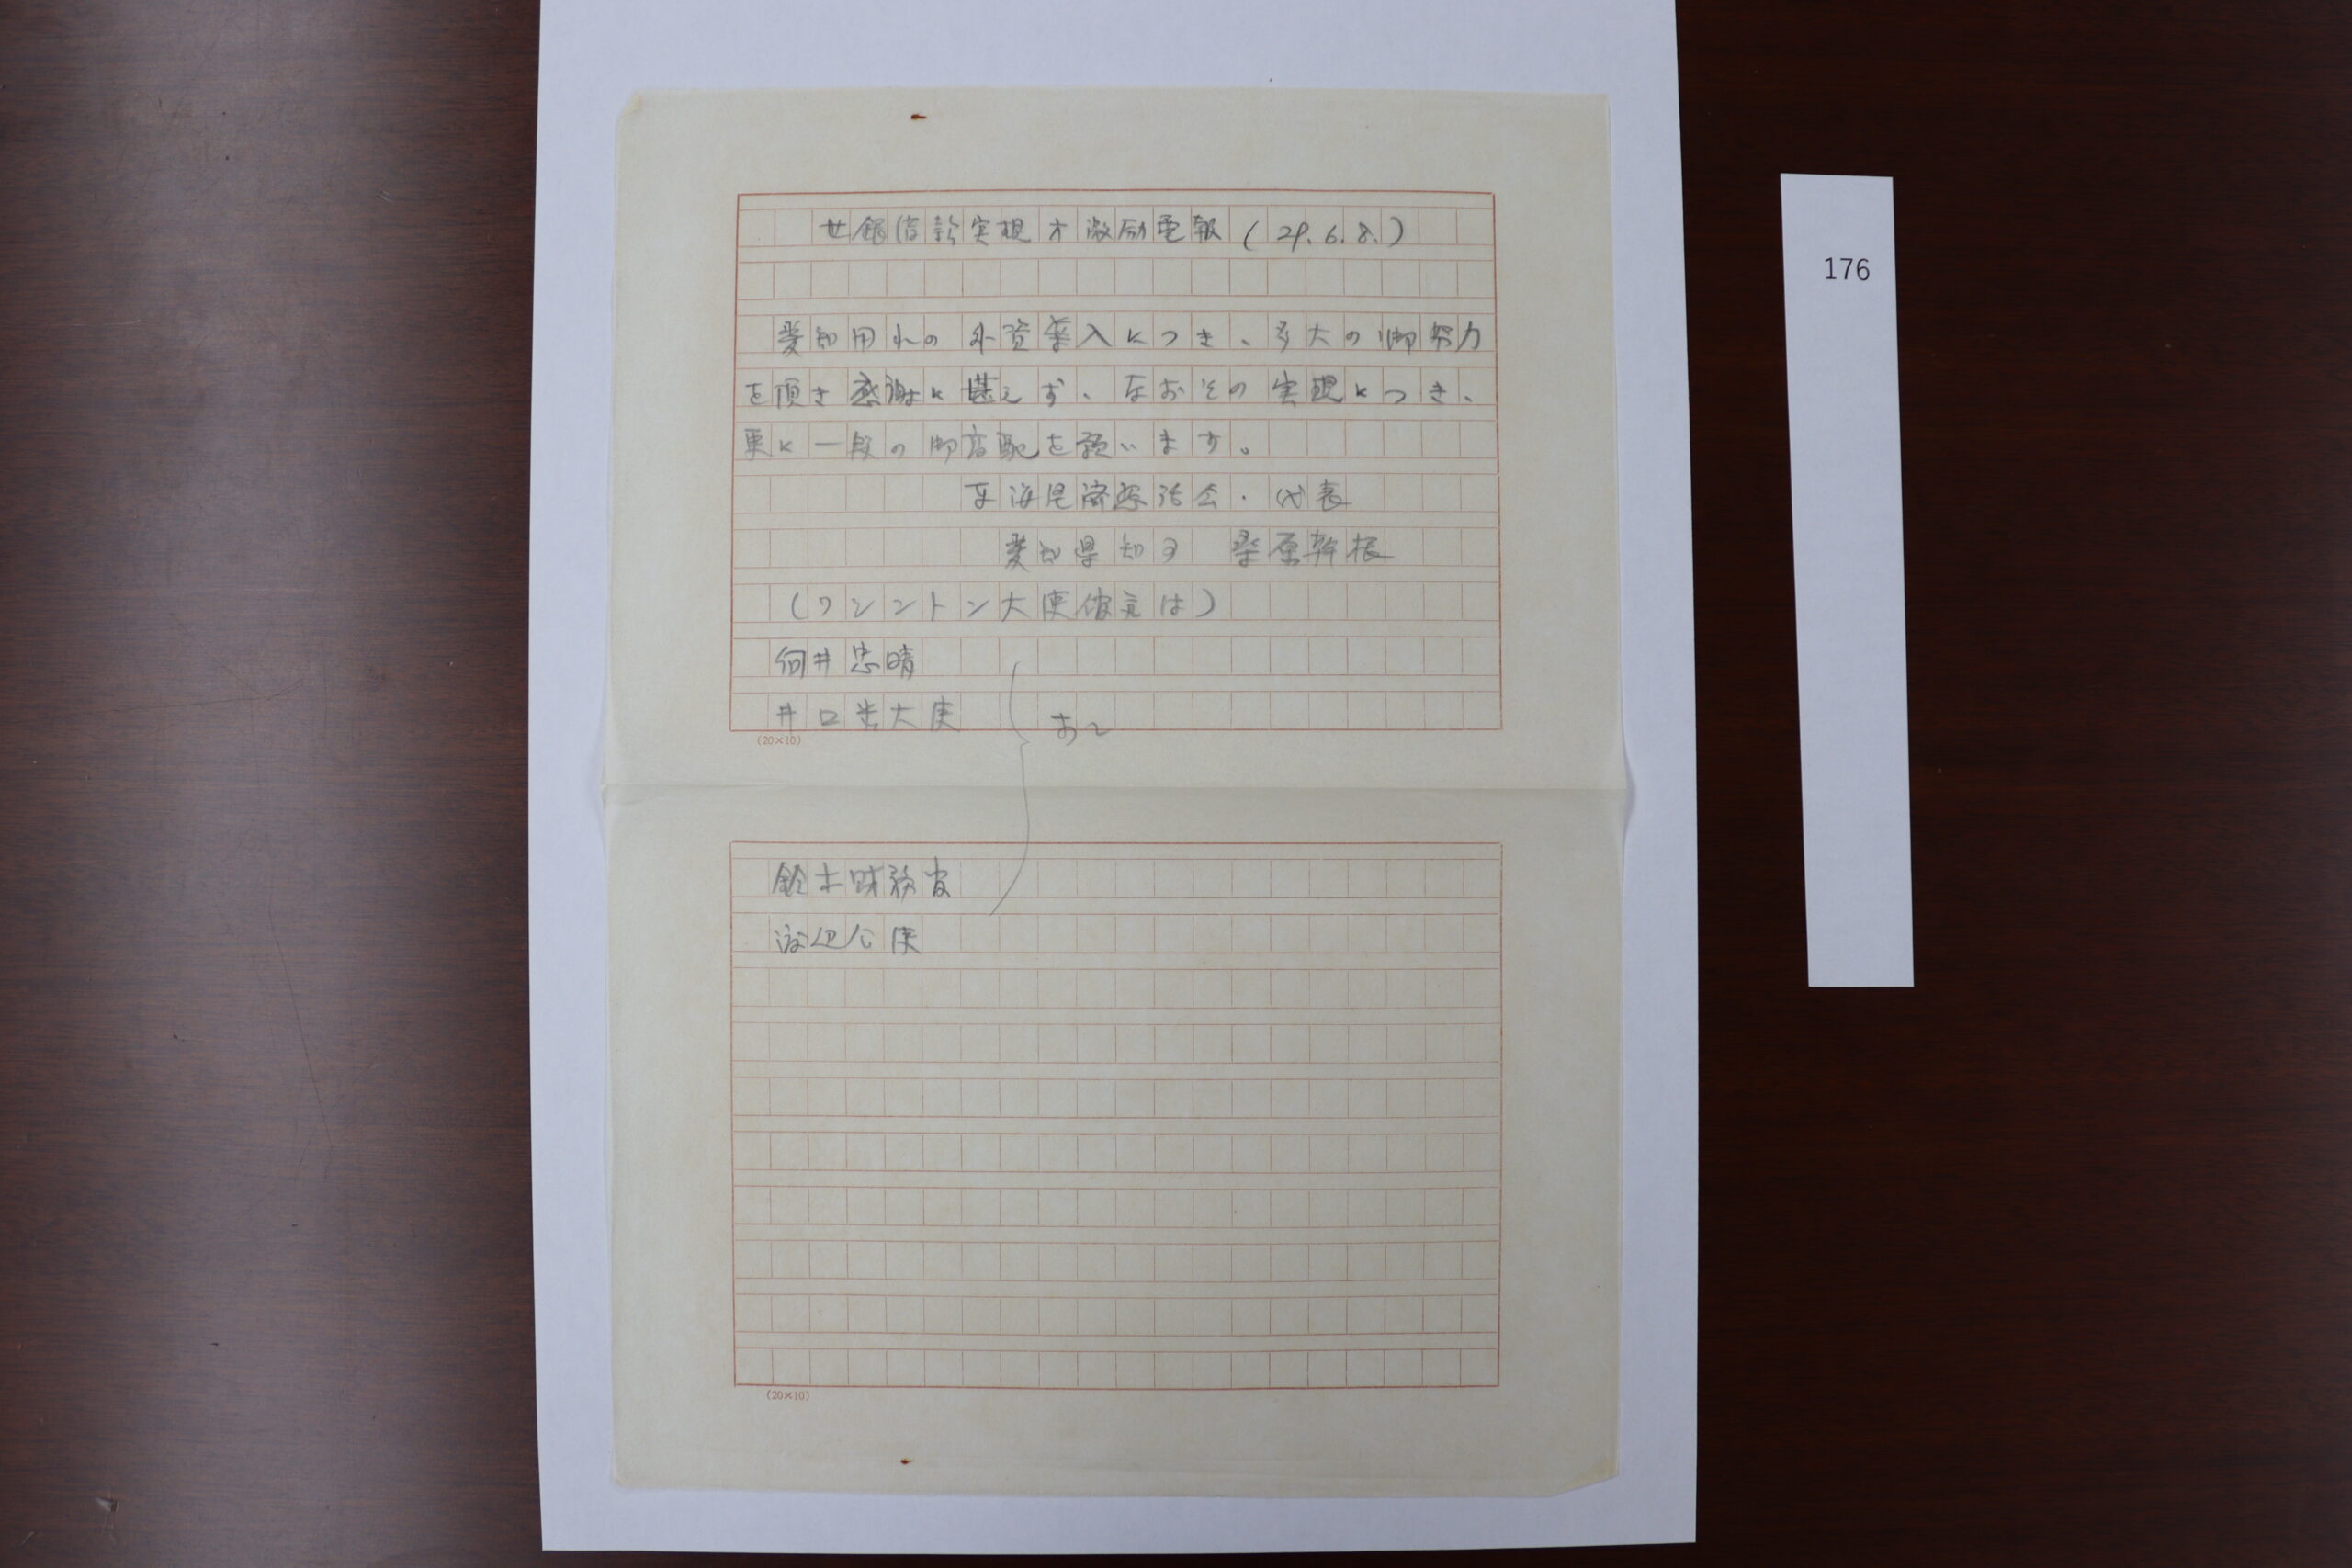 世銀借款実現方激励電報(29.6.8.)
愛知用水の外資導入につき、多大の御努力
を頂き感謝に堪えず、なおその実現につき、
更に一段の御高配を願います。
東海経済懇話会・代表
愛知県知事 桑原幹根
(ワシントン大使館気付)
向井忠晴
井口半大使
あて
(20×10)
鈴木財務官
渡辺公使
(20×10)
176